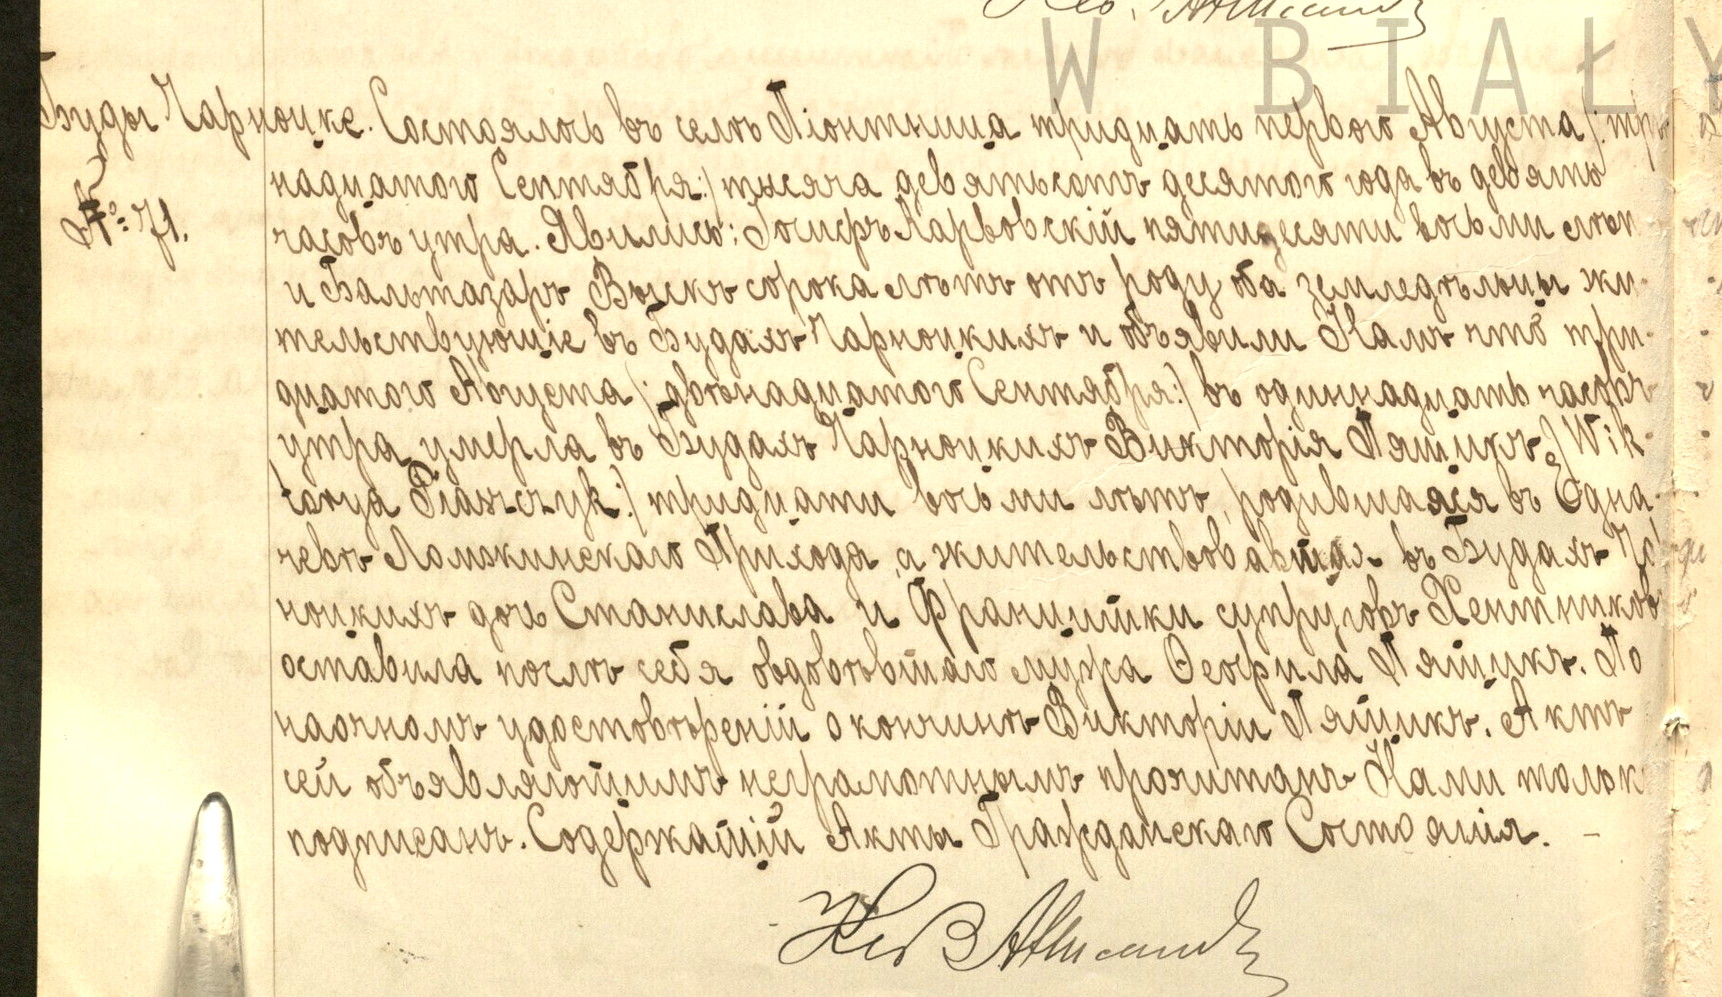 W BIAŁY
Буды Чарноцке. Состоялось въ селѣ Піонтница тридцать перваго Августа /: три
№ 71.
надцатого Сентября :/ тысяча девятьсотъ десятого года въ девять
часовъ утра. Явились: Іосифъ Карвовскій пятидесяти восьми лѣтъ
и Бальтазаръ Воикъ сорока лѣтъ отъ роду оба земледѣльцы жи-
тельствующіе въ Будахъ Чарноцкихъ и объявили Намъ что три-
дцатого Августа /: двѣнадцатого Сентября :/ въ одиннадцать часовъ
утра умерла въ Будахъ Чарноцкихъ Викторія Пящикъ /: Wik-
torya Piaszczyk :/ тридцати восьми лѣтъ, родившаяся въ
Ломжинскаго Прихода, а жительствовавшая въ Будахъ Чар
ноцкихъ дочь Станислава и Францишки супруговъ Хентниковъ
оставила послѣ себя овдовѣвшаго мужа Ѳеофила Пящикъ. По
наочномъ удостовѣреніи о кончинѣ Викторіи Пящикъ. Актъ
сей объявляющимъ неграмотнымъ прочитанъ Нами только
подписанъ. Содержащій Акты Гражданскаго Состоянія. –